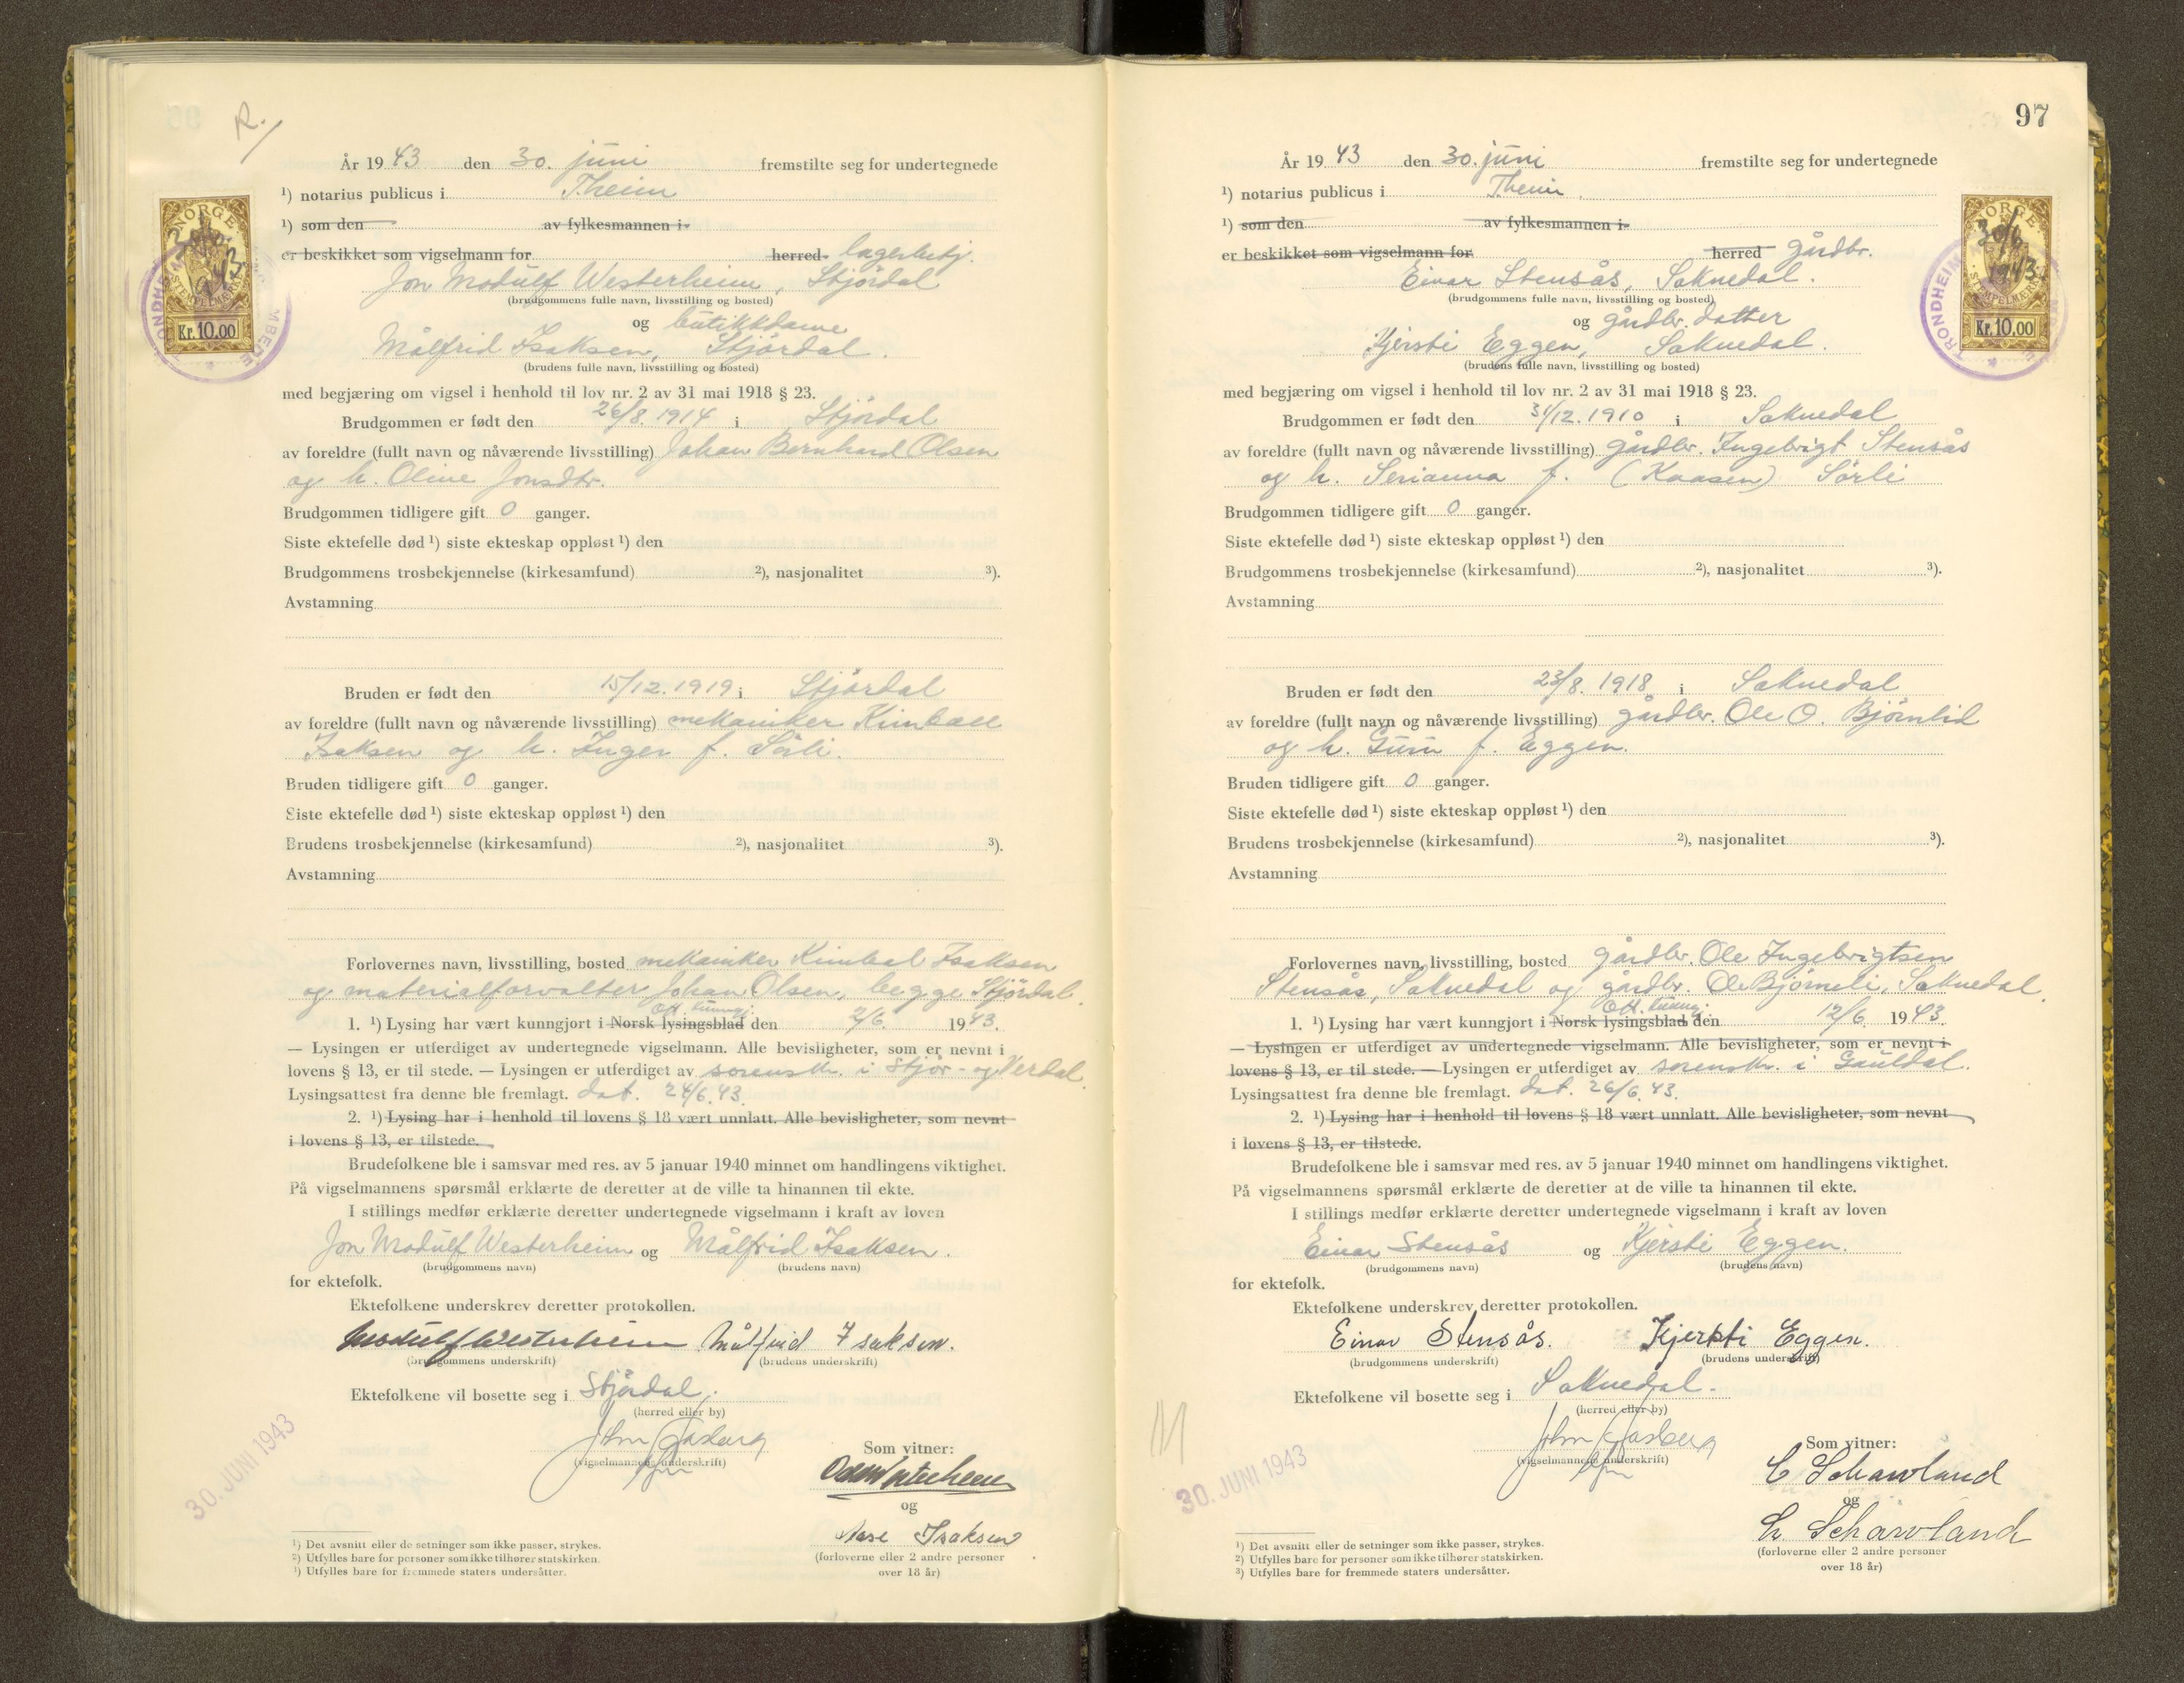 R./
År 1943 den 30. juni fremstilte seg for undertegnede
¹) notarius publicus i Theim
¹) som den av fylkesmannen i
er beskikket som vigselmann for herred lagerbetj.
Jon Modulf Westerheim, Stjørdal
(brudgommens fulle navn, livsstilling og bosted)
og butikkdame
Målfrid Isaksen, Stjørdal.
(brudens fulle navn, livsstilling og bosted)
med begjæring om vigsel i henhold til lov nr. 2 av 31 mai 1918 § 23.
Brudgommen er født den 26/8. 1914 i Stjørdal
av foreldre (fullt navn og nåværende livsstilling) Johan Bernhard Olsen
og h. Oline Jonsdtr.
Brudgommen tidligere gift 0 ganger.
Siste ektefelle død ¹) siste ekteskap oppløst ¹) den
Brudgommens trosbekjennelse (kirkesamfund) ²), nasjonalitet ³).
Avstamning
Bruden er født den 15/12. 1919 i Stjørdal
av foreldre (fullt navn og nåværende livsstilling) mekaniker Kimbael
Isaksen og h. Inger f. Sørli.
Bruden tidligere gift 0 ganger.
Siste ektefelle død ¹) siste ekteskap oppløst ¹) den
Brudens trosbekjennelse (kirkesamfund) ²), nasjonalitet ³).
Avstamning
Forlovernes navn, livsstilling, bosted mekaniker Kimbal Isaksen
og materialforvalter Johan Olsen, begge Stjørdal.
Off. kunngj.
1. ¹) Lysing har vært kunngjort i Norsk lysingsblad den 2/6. 1943.
— Lysingen er utferdiget av undertegnede vigselmann. Alle bevisligheter, som er nevnt i
lovens § 13, er til stede. — Lysingen er utferdiget av sorenskr. i Stjør- og Verdal.
Lysingsattest fra denne ble fremlagt. dat. 24/6. 43.
2. ¹) Lysing har i henhold til lovens § 18 vært unnlatt. Alle bevisligheter, som nevnt
i lovens § 13, er tilstede.
Brudefolkene ble i samsvar med res. av 5 januar 1940 minnet om handlingens viktighet.
På vigselmannens spørsmål erklærte de deretter at de ville ta hinannen til ekte.
I stillings medfør erklærte deretter undertegnede vigselmann i kraft av loven
Jon Modulf Westerheim og Målfrid Isaksen.
(brudgommens navn) (brudens navn)
for ektefolk.
Ektefolkene underskrev deretter protokollen.
Modulf Westerheim Målfrid Isaksen.
(brudgommens underskrift) (brudens underskrift)
Ektefolkene vil bosette seg i Stjørdal.
(herred eller by)
(vigselmannens underskrift)
Som vitner:
og
Aase Isaksen
(forloverne eller 2 andre personer
over 18 år)
30. JUNI 1943
¹) Det avsnitt eller de setninger som ikke passer, strykes.
²) Utfylles bare for personer som ikke tilhører statskirken.
³) Utfylles bare for fremmede staters undersåtter.
NORGE
STEMPELMÆRKE
Kr. 10.00
97
År 1943 den 30. juni fremstilte seg for undertegnede
¹) notarius publicus i Theim.
¹) som den av fylkesmannen i
er beskikket som vigselmann for herred gårdbr.
Einar Stensås, Soknedal.
(brudgommens fulle navn, livsstilling og bosted)
og gårdbr. datter
Kjersti Eggen, Soknedal.
(brudens fulle navn, livsstilling og bosted)
med begjæring om vigsel i henhold til lov nr. 2 av 31 mai 1918 § 23.
Brudgommen er født den 31/12. 1910 i Soknedal
av foreldre (fullt navn og nåværende livsstilling) gårdbr. Ingebrigt Stensås
og h. Serianna f. (Kaasen) Sørli
Brudgommen tidligere gift 0 ganger.
Siste ektefelle død ¹) siste ekteskap oppløst ¹) den
Brudgommens trosbekjennelse (kirkesamfund) ²), nasjonalitet ³).
Avstamning
Bruden er født den 23/8. 1918 i Soknedal
av foreldre (fullt navn og nåværende livsstilling) gårdbr. Ole O. Bjørnlid
og h. Guru f. Eggen.
Bruden tidligere gift 0 ganger.
Siste ektefelle død ¹) siste ekteskap oppløst ¹) den
Brudens trosbekjennelse (kirkesamfund) ²), nasjonalitet ³).
Avstamning
Forlovernes navn, livsstilling, bosted gårdbr. Ole Ingebrigtsen
Stensås, Soknedal og gårdbr. Ole Bjørneli, Soknedal.
Off. kunngj.
1. ¹) Lysing har vært kunngjort i Norsk lysingsblad den 12/6. 1943.
— Lysingen er utferdiget av undertegnede vigselmann. Alle bevisligheter, som er nevnt i
lovens § 13, er til stede. — Lysingen er utferdiget av sorenskr. i Gauldal.
Lysingsattest fra denne ble fremlagt. dat. 26/6. 43.
2. ¹) Lysing har i henhold til lovens § 18 vært unnlatt. Alle bevisligheter, som nevnt
i lovens § 13, er tilstede.
Brudefolkene ble i samsvar med res. av 5 januar 1940 minnet om handlingens viktighet.
På vigselmannens spørsmål erklærte de deretter at de ville ta hinannen til ekte.
I stillings medfør erklærte deretter undertegnede vigselmann i kraft av loven
Einar Stensås og Kjersti Eggen.
(brudgommens navn) (brudens navn)
for ektefolk.
Ektefolkene underskrev deretter protokollen.
Einar Stensås. Kjersti Eggen.
(brudgommens underskrift) (brudens underskrift)
Ektefolkene vil bosette seg i Soknedal.
(herred eller by)
(vigselmannens underskrift)
Som vitner:
C Schawland
og
L Schawland
(forloverne eller 2 andre personer
over 18 år)
30. JUNI 1943
¹) Det avsnitt eller de setninger som ikke passer, strykes.
²) Utfylles bare for personer som ikke tilhører statskirken.
³) Utfylles bare for fremmede staters undersåtter.
NORGE
30/6
1943
STEMPELMÆRKE
Kr. 10.00
TRONDHEIM